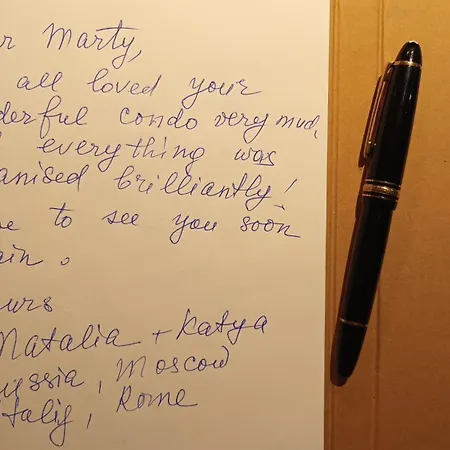 r Marty,
all loved your
derful condo very much,
everything was
anised brilliantly!
e to see you soon
ain.
urs
Natalia + Katya
yssia, Moscow
taliy, Rome